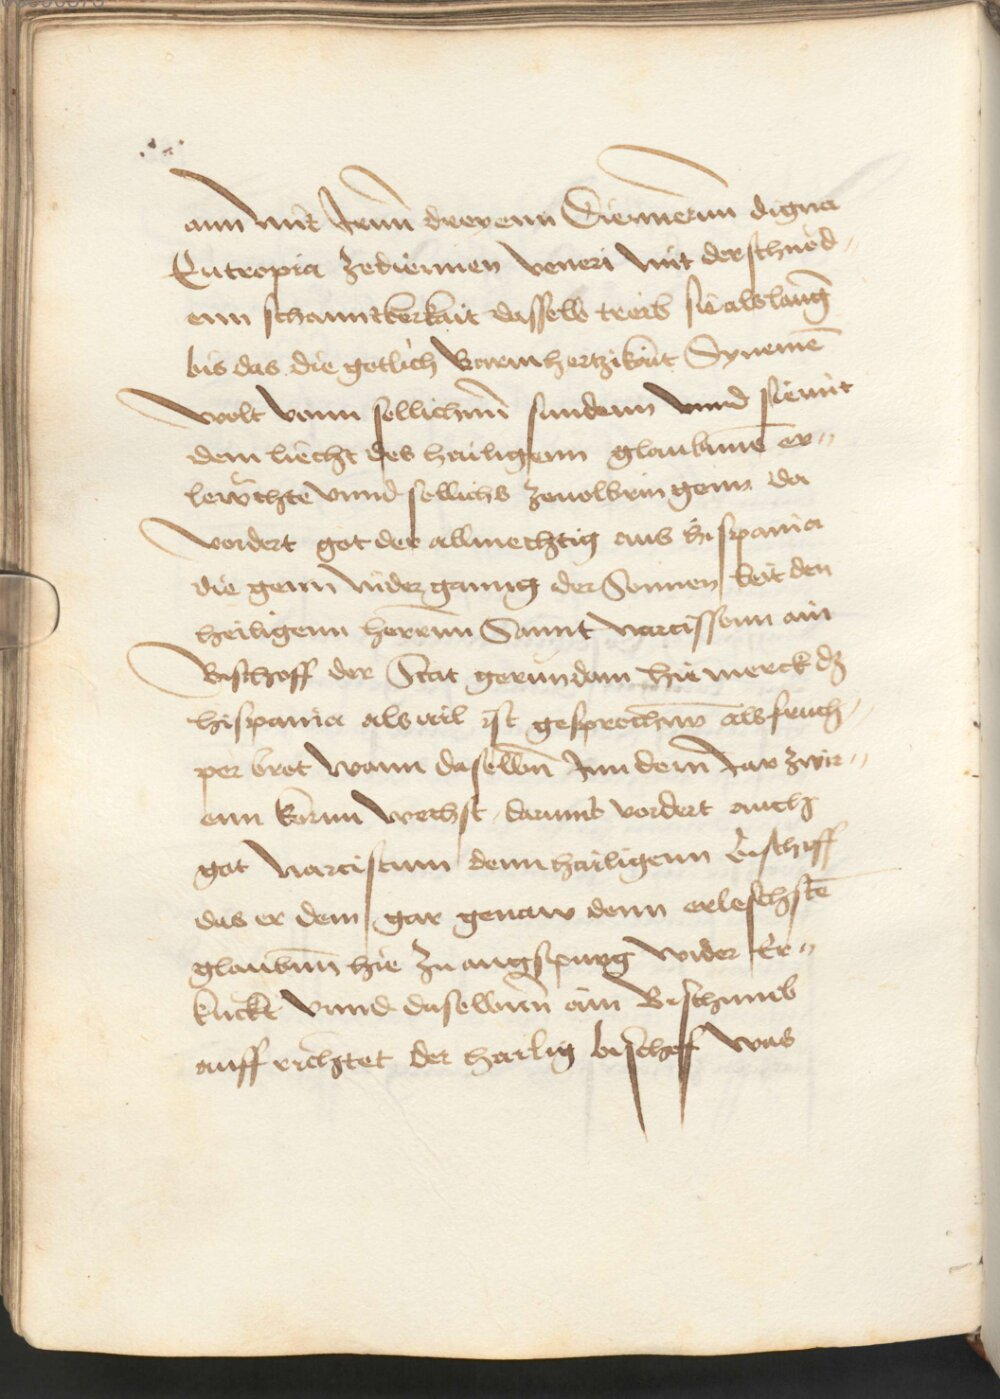 ann mit Irnn dreyenn Diennerinn digna
Eutropia zediennen veneri mit der schnod-
enn schannckerkait dasselb treib sie als lang
bis das die gotlich Barmhertzikait Synemē
wolt vonn sollichnn sundenn vnnd sie mit
dem liecht des hailigenn glaubnnē er-
lewchte vnnd sollichs zeuolbringenn da
vordert got der allmechtig aus hispania
die genn nider ganng der Sonnen leit den
heiligenn herrnn Sannt Narcissenn ain
Bischoff der Stat gerundam hie merck dz
hispania als vil ist gesprochnn als
per brot wann daselbn Inn dem Jar zwir-
enn kornn wechst darumb vordert auch
got Narcissum denn hailigenn Bischoff
das er dem gar genaw denn erleschstē
glaubnn hie zu augspurg wider Er-
kuckt vnnd daselbnn ain Bistumb
auff richtet der hailig bischof was